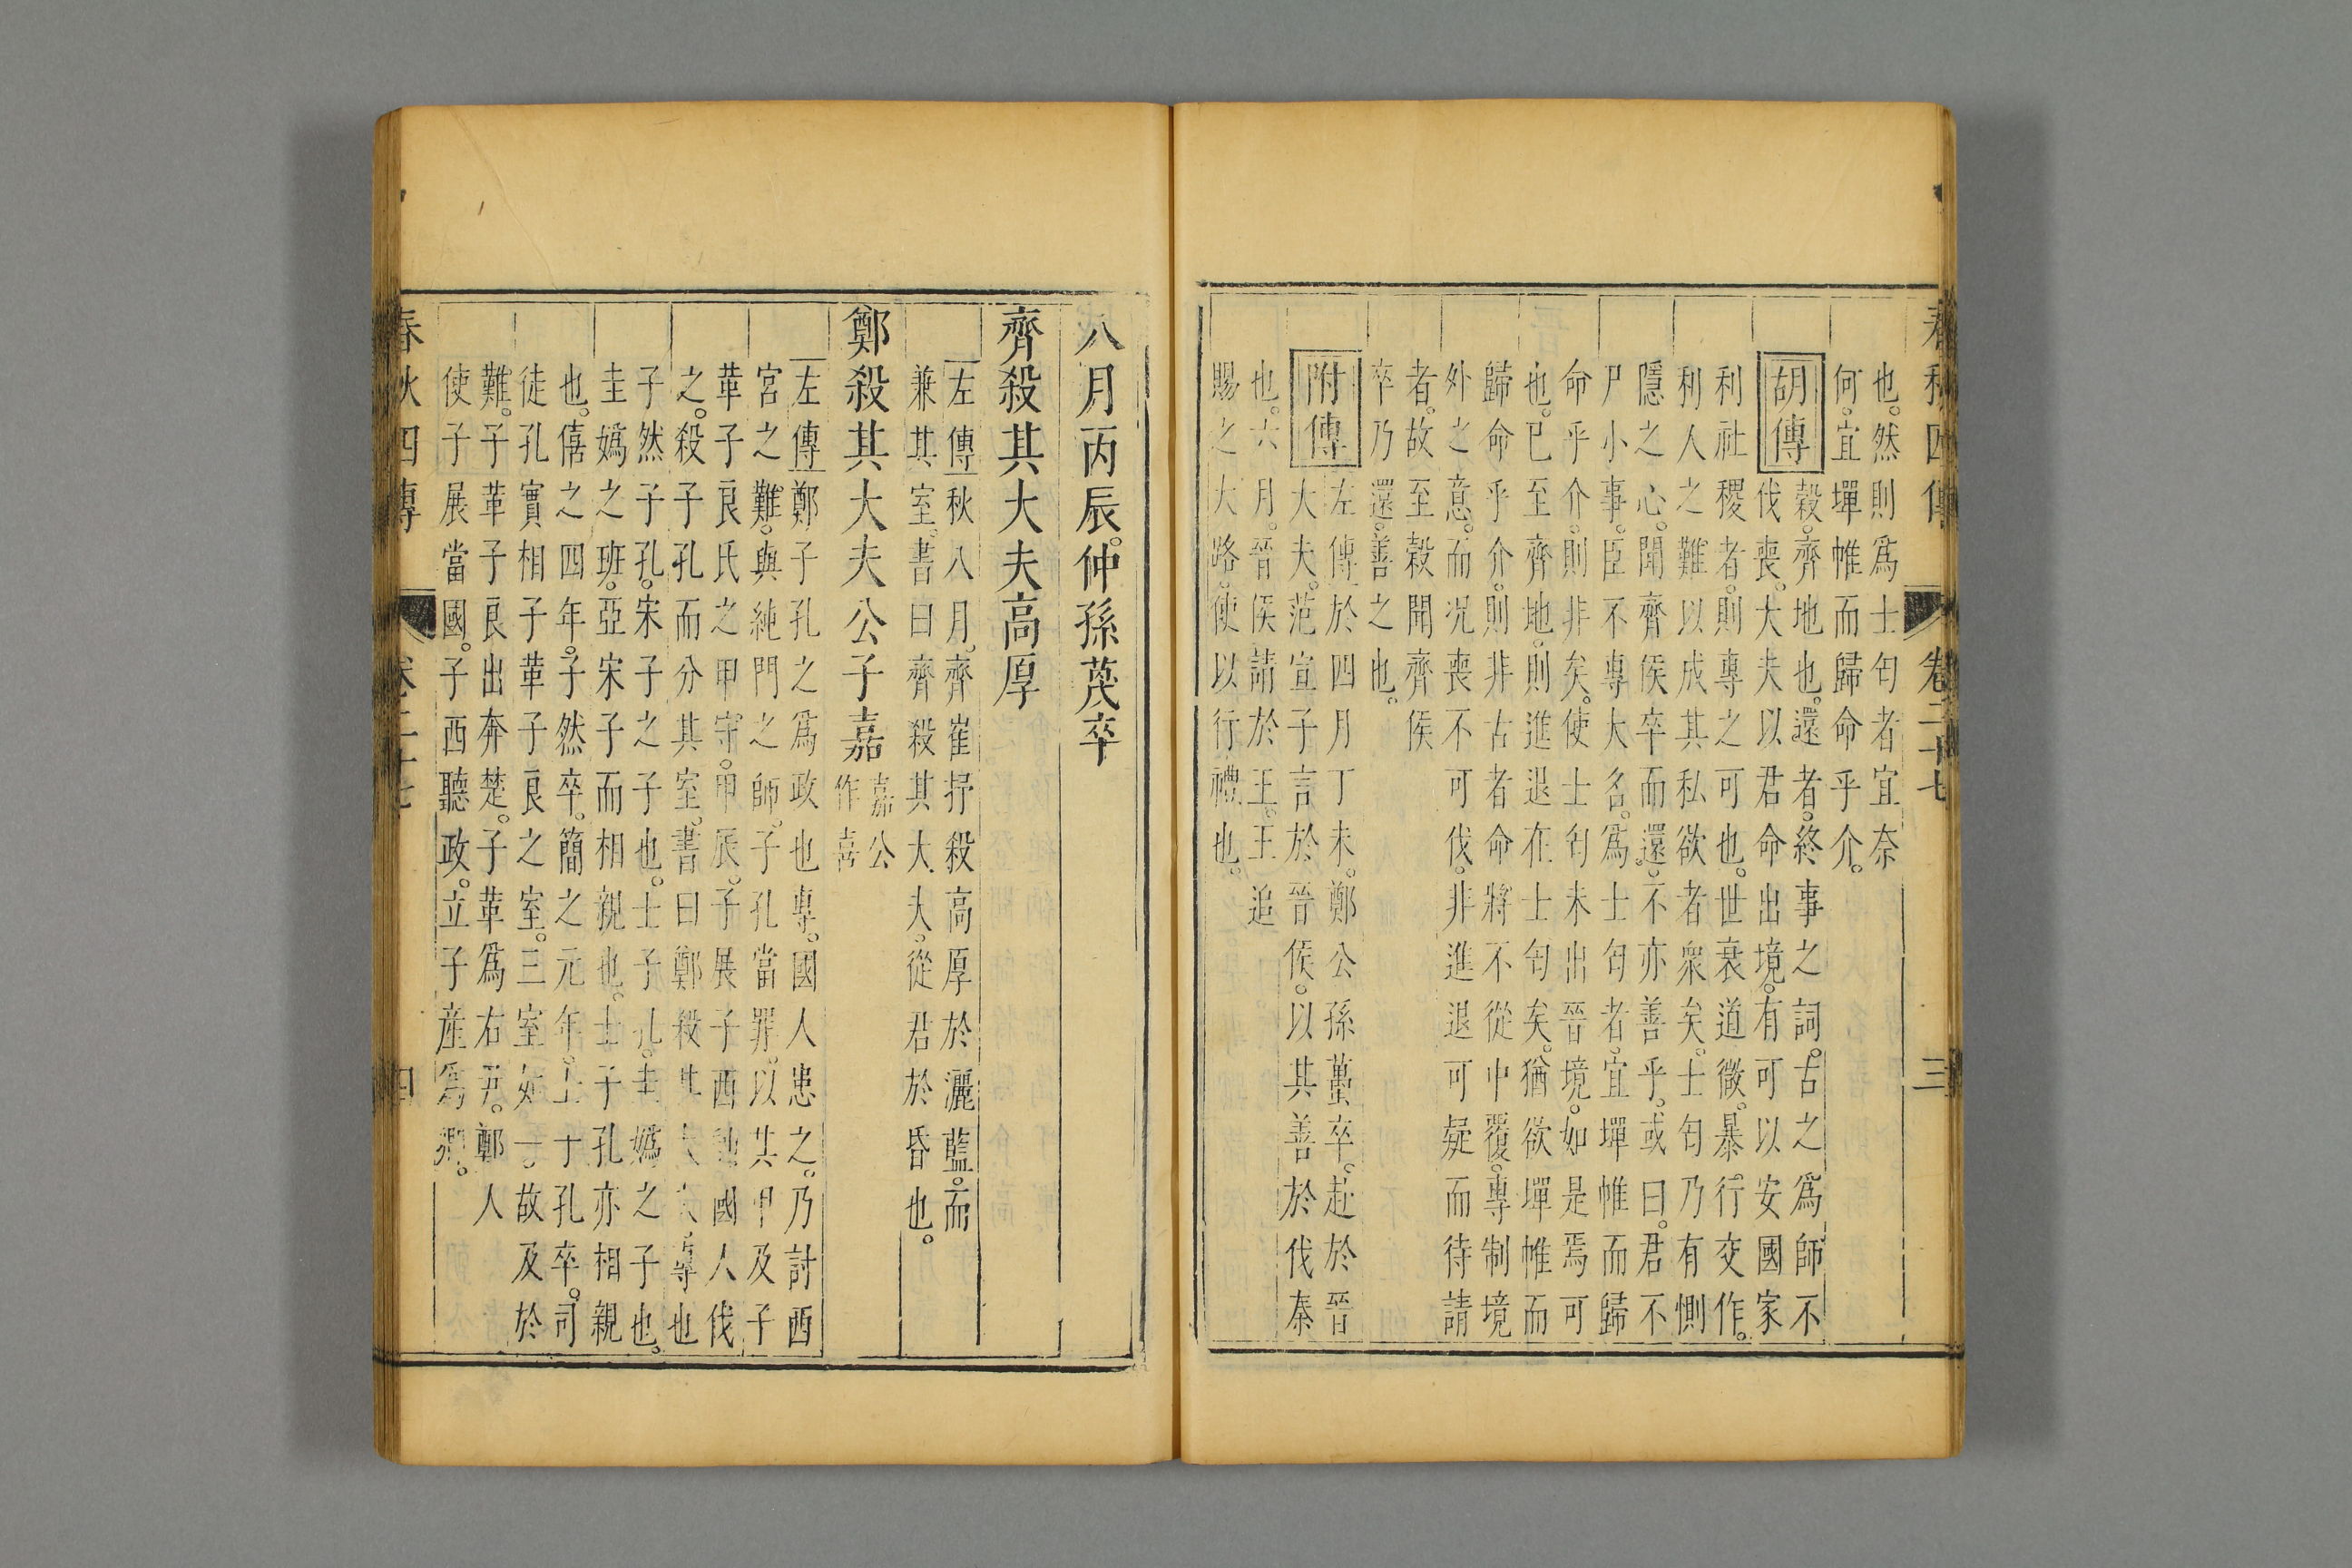 春秋四傳 卷二十七 三
也。然則爲士匄者宜奈
何。宜墠帷而歸命乎介。
胡傳
穀。齊地也。還者。終事之詞。古之爲師不
伐喪。大夫以君命出境。有可以安國家
利社稷者。則專之可也。世衰道微。暴行交作。
利人之難以成其私欲者衆矣。士匄乃有惻
隱之心。聞齊侯卒而還。不亦善乎。或曰。君不
尸小事。臣不專大名。爲士匄者。宜墠帷而歸
命乎介。則非矣。使士匄未出晉境。如是焉可
也。已至齊地。則進退在士匄矣。猶欲墠帷而
歸命乎介。則非古者命將不從中覆。專制境
外之意。而况喪不可伐。非進退可疑而待請
者。故至穀聞齊侯
卒乃還。善之也。
附傳
左傳於四月丁未。鄭公孫蠆卒。赴於晉
大夫。范宣子言於晉侯。以其善於伐秦
也。六月。晉侯請於王。王追
賜之大路。使以行禮也。
八月丙辰。仲孫蔑卒
齊殺其大夫高厚
左傳秋八月。齊崔抒殺高厚於灑藍。而
兼其室。書曰齊殺其大夫。從君於昏也。
鄭殺其大夫公子嘉 嘉公
作喜
左傳鄭子孔之爲政也專。國人患之。乃討西
宮之難。與純門之師。子孔當罪。以其甲及子
革子良氏之甲守。甲辰。子展子西 國人伐
之。殺子孔而分其室。書曰鄭殺其大夫。專也
子然子孔。宋子之子也。士子孔。圭嬀之子也。
圭嬀之班。亞宋子而相親也。士子孔亦相親
也。僖之四年。子然卒。簡之元年。士子孔卒。司
徒孔實相子革子良之室。三室如一。故及於
難。子革子良出奔楚。子革爲右尹。鄭人
使子展當國。子西聽政。立子產爲卿。
春秋四傳 卷二十七 四